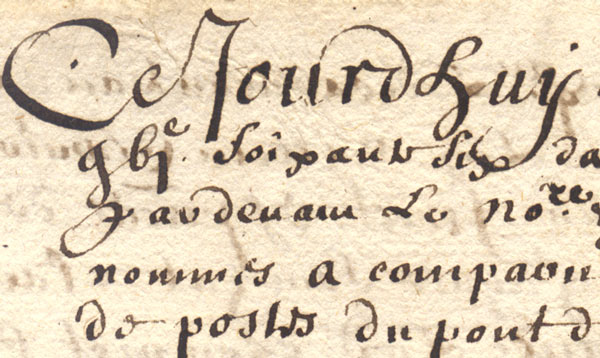 Ce Jourdhuy
gbje soixante six da
pardevant Le no.re
nommés a comparu
de postes du pont d